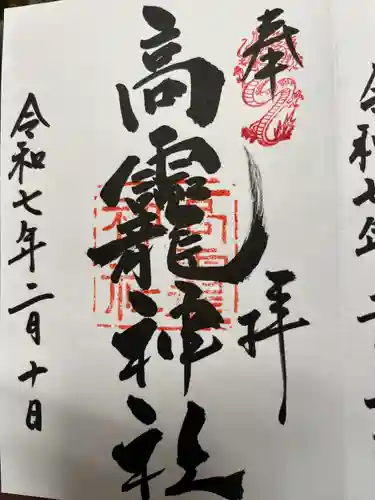 奉拝
高龗神社
令和七年二月十日
令和七年